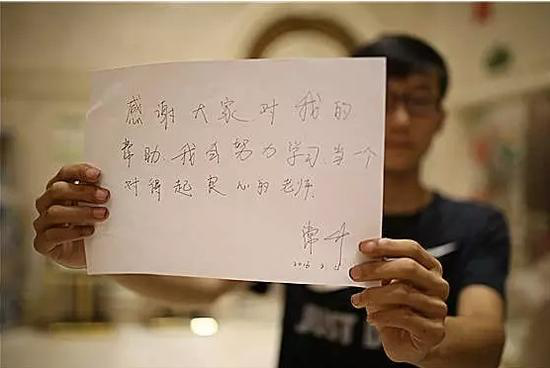 感谢大家对我的
帮助.我会努力学习.当个
对得起良心的老师.
常升
JUST D